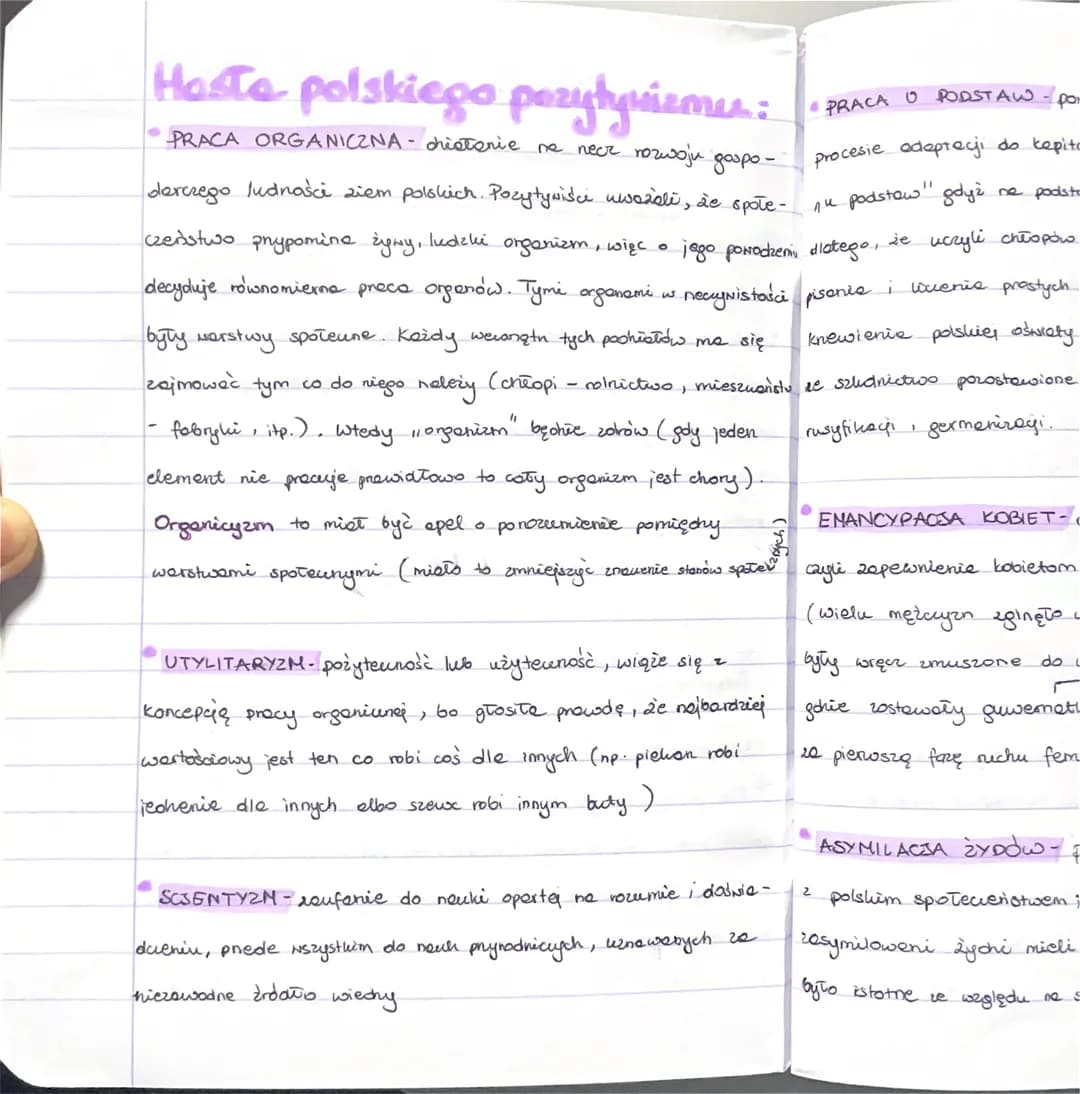 Hasła polskiego pozytywizmu:
PRACA ORGANICZNA - działanie na rzecz rozwoju gospo-
darczego ludności ziem polskich. Pozytywiści uważali, że społe-
czeństwo przypomina żywy, ludzki organizm, więc o jego powodzeniu
decyduje równomierna praca organów. Tymi organami w rzeczywistości
były warstwy społeczne. Każdy wewnątrz tych podziałów ma się
zajmować tym co do niego należy (chłopi - rolnictwo, mieszczaństwo
- fabryki, itp.). Wtedy „organizm" będzie zdrów (gdy jeden
element nie pracuje prawidłowo to cały organizm jest chory).
Organicyzm to miał być apel o porozumienie pomiędzy
warstwami społecznymi (miało to zmniejszyć znaczenie stanów społecznych)
UTYLITARYZM - pożyteczność lub użyteczność, wiąże się z
koncepcją pracy organicznej, bo głosiła prawdę, że najbardziej
wartościowy jest ten co robi coś dla innych (np. piekarz robi
jedzenie dla innych albo szewc robi innym buty)
SCJENTYZM - zaufanie do nauki opartej na rozumie i doświa-
dczeniu, przede wszystkim do nauk przyrodniczych, uznawanych za
niezawodne źródło wiedzy
PRACA U PODSTAW - po
procesie adaptacji do kapita
„u podstaw" gdyż na podsta
dlatego, że uczyli chłopów
pisania i liczenia prostych
krzewienie polskiej oświaty
że szkolnictwo pozostawione
rusyfikacji i germanizacji.
EMANCYPACJA KOBIET -
czyli zapewnienie kobietom
(wielu mężczyzn zginęło
były wręcz zmuszone do
gdzie zostawały guwernant
za pierwszą fazę ruchu fem
ASYMILACJA ŻYDÓW -
z polskim społeczeństwem i
zasymilowani żydzi mieli
było istotne ze względu na s